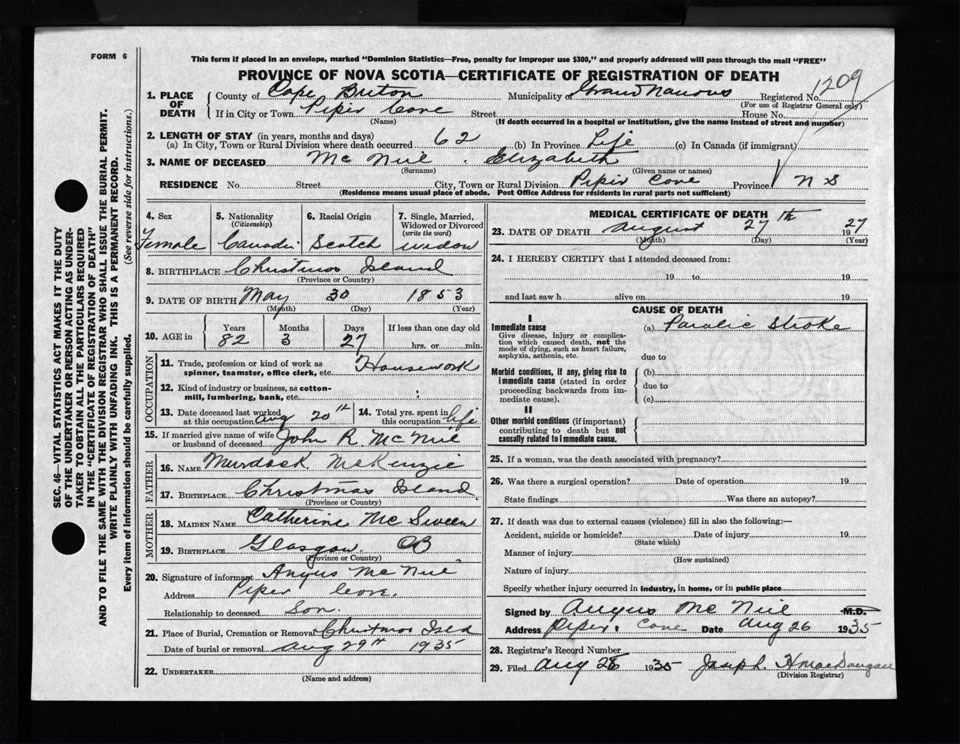 FORM 6
This form if placed in an envelope, marked "Dominion Statistics—Free, penalty for improper use $300," and properly addressed will pass through the mail "FREE"
PROVINCE OF NOVA SCOTIA—CERTIFICATE OF REGISTRATION OF DEATH
1209
1. PLACE OF DEATH
County of Cape Breton Municipality of Grand Narrows Registered No.
(For use of Registrar General only)
If in City or Town Pipir Cove Street House No.
(Name) (If death occurred in a hospital or institution, give the name instead of street and number)
2. LENGTH OF STAY (in years, months and days)
(a) In City, Town or Rural Division where death occurred 62 (b) In Province Life (c) In Canada (if immigrant)
3. NAME OF DECEASED McNeil . Elizabeth
(Surname) (Given name or names)
RESIDENCE No. Street City, Town or Rural Division Pipir Cove Province NS
(Residence means usual place of abode. Post Office Address for residents in rural parts not sufficient)
4. Sex Female
5. Nationality (Citizenship) Canadi
6. Racial Origin Scotch
7. Single, Married, Widowed or Divorced (write the word) widow
8. BIRTHPLACE Christmas Island
(Province or Country)
9. DATE OF BIRTH May 30 1853
(Month) (Day) (Year)
10. AGE in Years 82 Months 3 Days 27 If less than one day old hrs. or min.
OCCUPATION
11. Trade, profession or kind of work as spinner, teamster, office clerk, etc. Housework
12. Kind of industry or business, as cotton-mill, lumbering, bank, etc.
13. Date deceased last worked at this occupation Aug 20th
14. Total yrs. spent in this occupation life
15. If married give name of wife or husband of deceased John R McNeil
FATHER
16. Name Murdock McKenzie
17. Birthplace Christmas Island
(Province or Country)
MOTHER
18. Maiden Name Catherine McSween
19. Birthplace Glasgow CB
(Province or Country)
20. Signature of informant Angus McNeil
Address Piper Cove.
Relationship to deceased Son.
21. Place of Burial, Cremation or Removal Christmas Isld
Date of burial or removal Aug 29th 1935
22. UNDERTAKER
(Name and address)
MEDICAL CERTIFICATE OF DEATH
23. DATE OF DEATH August 27th 1927
(Month) (Day) (Year)
24. I HEREBY CERTIFY that I attended deceased from:
19 to 19
and last saw h alive on 19
CAUSE OF DEATH
I
Immediate cause
Give disease, injury or complication which caused death, not the mode of dying, such as heart failure, asphyxia, asthenia, etc.
(a) Paralic Stroke
due to
Morbid conditions, if any, giving rise to immediate cause (stated in order proceeding backwards from immediate cause).
(b)
due to
(c)
II
Other morbid conditions (if important) contributing to death but not causally related to immediate cause.
25. If a woman, was the death associated with pregnancy?
26. Was there a surgical operation? Date of operation 19
State findings Was there an autopsy?
27. If death was due to external causes (violence) fill in also the following:—
Accident, suicide or homicide? Date of injury 19
(State which)
Manner of injury
(How sustained)
Nature of injury
Specify whether injury occurred in industry, in home, or in public place
Signed by Angus McNeil M.D.
Address Piper Cove Date Aug 26 1935
28. Registrar's Record Number
29. Filed Aug 28 1935 Joseph H MacDougall
(Division Registrar)
SEC. 46—VITAL STATISTICS ACT MAKES IT THE DUTY
OF THE UNDERTAKER OR PERSON ACTING AS UNDER-
TAKER TO OBTAIN ALL THE PARTICULARS REQUIRED
IN THE "CERTIFICATE OF REGISTRATION OF DEATH"
AND TO FILE THE SAME WITH THE DIVISION REGISTRAR WHO SHALL ISSUE THE BURIAL PERMIT.
WRITE PLAINLY WITH UNFADING INK. THIS IS A PERMANENT RECORD.
Every item of information should be carefully supplied. (See reverse side for instructions)